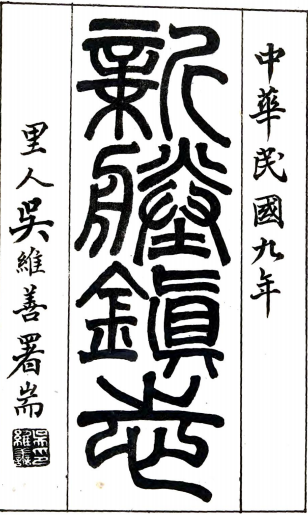 中華民國九年
新塍鎮志
里人吳維善署耑